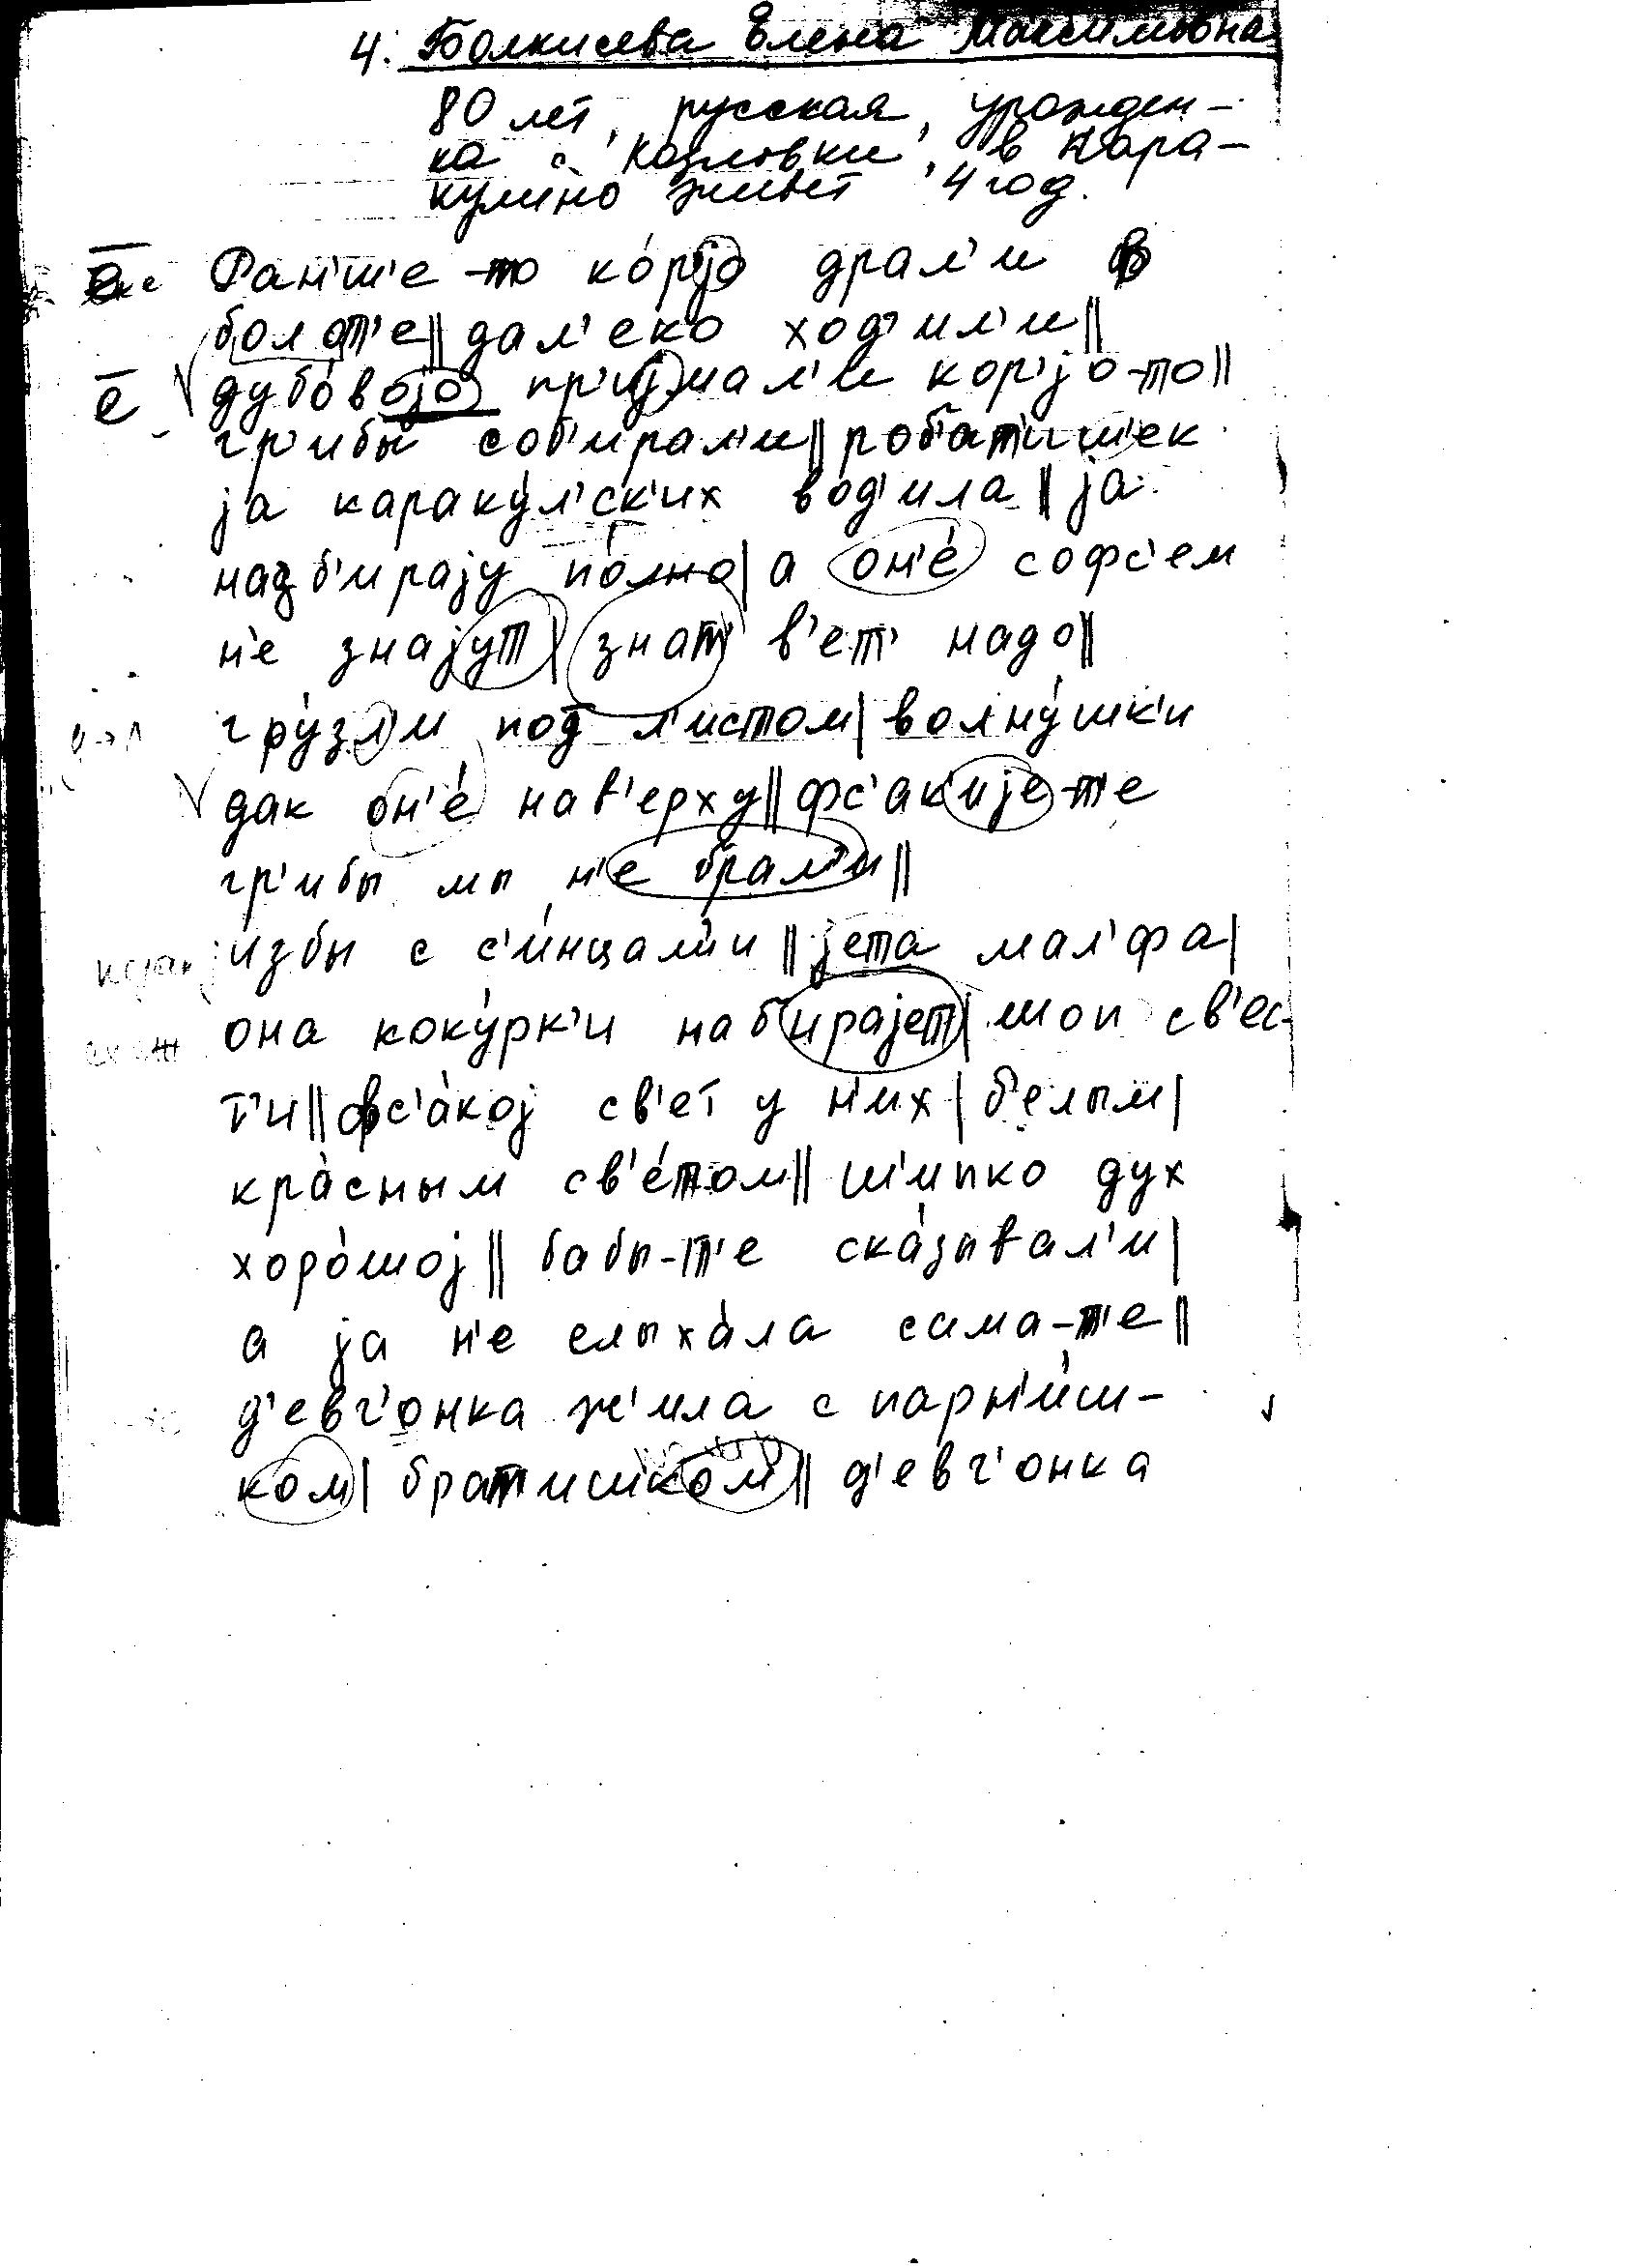 4. Болкисева Елена Максимовна
80 лет, русская, урожден-
ка с. Козловки, в Кара-
кулино живет 4 год.
Ран'ш'е-то ко́рјо драл'и в
болот'е || дал'еко ход'ил'и ||
дубо́војо пр'ијмал'и кор'јо-то ||
гр'ибы соб'ирал'и || роб'ат'иш'ек
ја караку́л'ск'их вод'ила || ја
надб'ирају по́лно | а он'е́ софс'ем
н'е знајут | знат' в'ет' надо ||
гру́зл'и под л'истом | волну́шк'и
дак он'е́ нав'ерху || фс'ак'ије-т'е
гр'ибы мы н'е брал'и ||
избы с с'и́нцам'и || јета мал'фа |
она коку́рк'и наб'ирајет | шоп св'ес-
т'и || фс'а́кој св'ет у н'их | б'елым |
кра́сным св'е́том || ш'ипко дух
хоро́шој || бабы-т'е ска́зывал'и |
а ја н'е слыха́ла сама-т'е ||
д'евг'онка ж'ила с парн'и́ш-
ком | брат'ишком || д'евг'онка